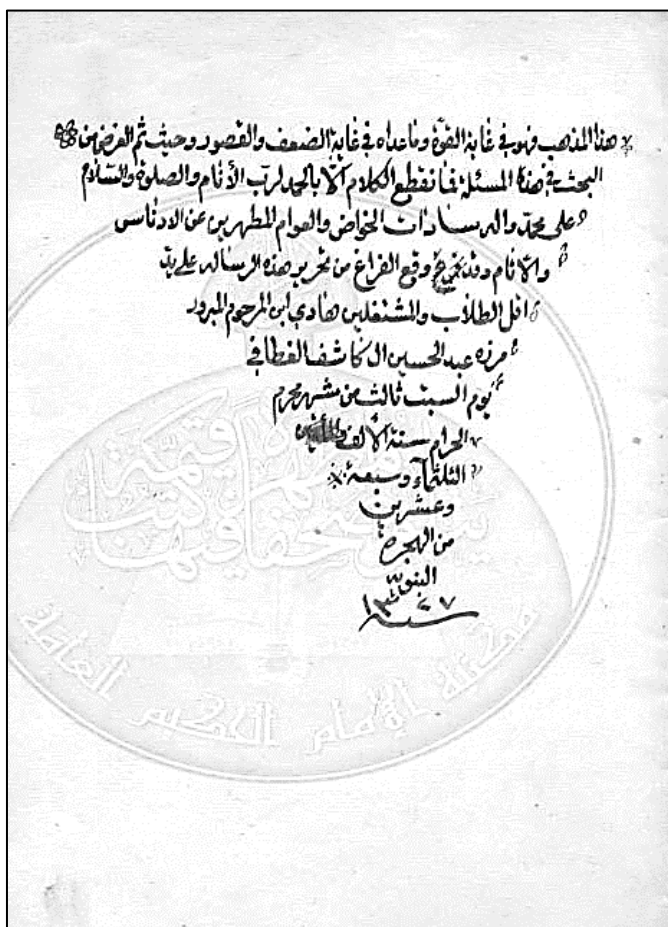 هذا المذهب فهو في غاية القوة وما عداه في غاية الضعف والقصور وحيث تم الغرض من
البحث في هذه المسئلة فما نقطع الكلام الا بالحمد لرب الأنام والصلوة والسلام
على محمد واله سادات الخواض والعوام المطهرين عن الادناس
والآثام وقد وقع الفراغ من تحرير هذه الرساله على يد
اقل الطلاب والمشتغلين هادي ابن المرحوم المبرور
مرزه عبد الحسين ال كاشف الغطا في
يوم السبت ثالث من شهر محرم
الحرام سنة الألف
الثلثمآء وسبعة
وعشرين
من الهجرة
النبويّة
سنه ١٣٢٧
مكتبة الإمام الحكيم العامة